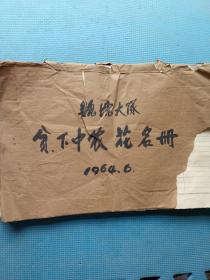 大队
贫.下中农花名册
1964.6.